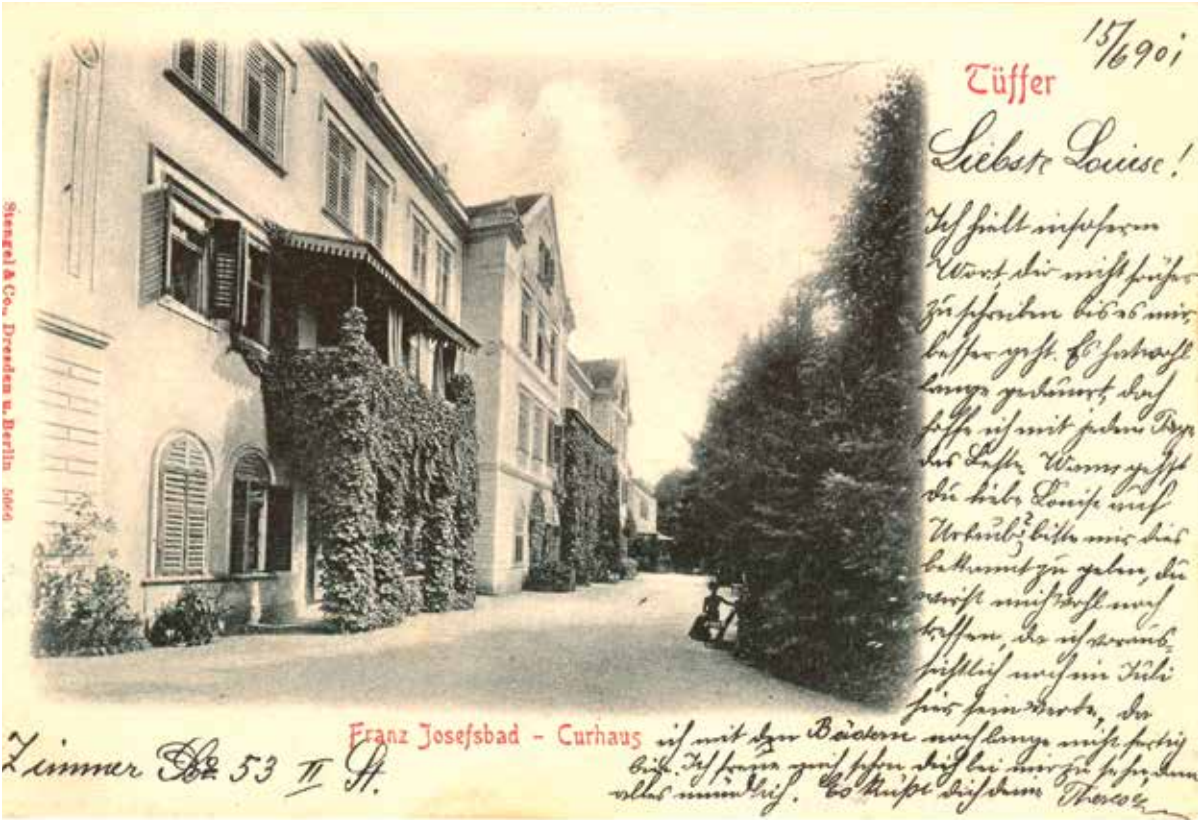 15/6 901
Tüffer
Liebste Louise!
Ich hielt insoferne
Wort, dir nicht früher
zu schreiben bis es mir
besser geht. Es hat wohl
lange gedauert, doch
hoffe ich mit jedem Tage
das Beste. Wann gehst
du liebe Louise auf
Urlaub? bitte mir dies
bekannt zu geben, du
wirst mich wohl noch
treffen, da ich voraus-
sichtlich noch im Juli
hier sein werde, da
ich mit den Bädern noch lange nicht fertig
bin. Ich freue mich schon dich bei mir zu sehen, dann
alles mündlich. Es küßt dich deine Therese
Franz Josefsbad - Curhaus
Zimmer No 53 II St.
Stengel & Co., Dresden u. Berlin